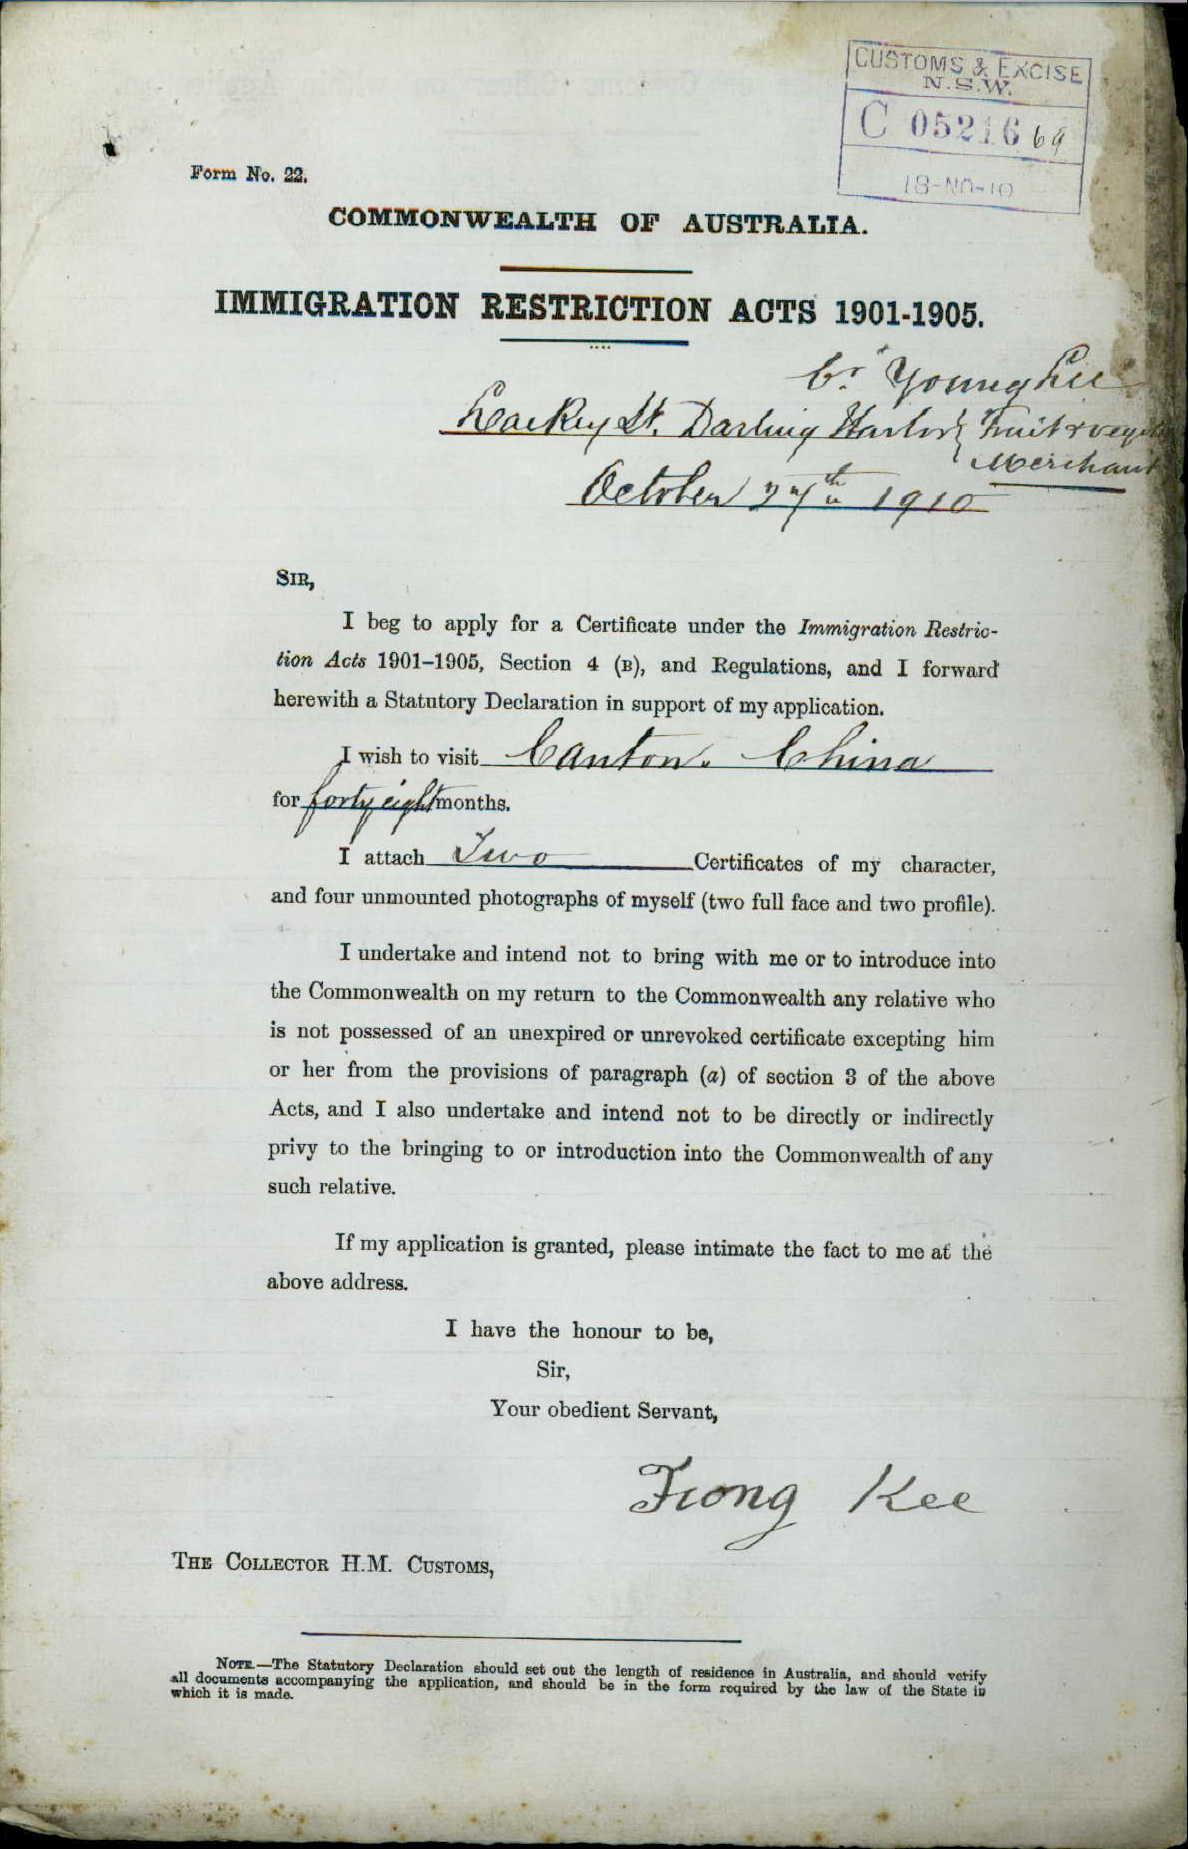 CUSTOMS & EXCISE
N.S.W.
C 05216 69
18-NO-10
Form No. 22.
COMMONWEALTH OF AUSTRALIA.
IMMIGRATION RESTRICTION ACTS 1901-1905.
Cr Young Lee
Lackey St. Darling Harbor Fruit & veg
Merchant
October 27th 1910
SIR,
I beg to apply for a Certificate under the Immigration Restric-
tion Acts 1901-1905, Section 4 (B), and Regulations, and I forward
herewith a Statutory Declaration in support of my application.
I wish to visit Canton. China
for forty eight months.
I attach Two Certificates of my character,
and four unmounted photographs of myself (two full face and two profile).
I undertake and intend not to bring with me or to introduce into
the Commonwealth on my return to the Commonwealth any relative who
is not possessed of an unexpired or unrevoked certificate excepting him
or her from the provisions of paragraph (a) of section 3 of the above
Acts, and I also undertake and intend not to be directly or indirectly
privy to the bringing to or introduction into the Commonwealth of any
such relative.
If my application is granted, please intimate the fact to me at the
above address.
I have the honour to be,
Sir,
Your obedient Servant,
Kee
THE COLLECTOR H.M. CUSTOMS,
NOTE.—The Statutory Declaration should set out the length of residence in Australia, and should verify
all documents accompanying the application, and should be in the form required by the law of the State in
which it is made.